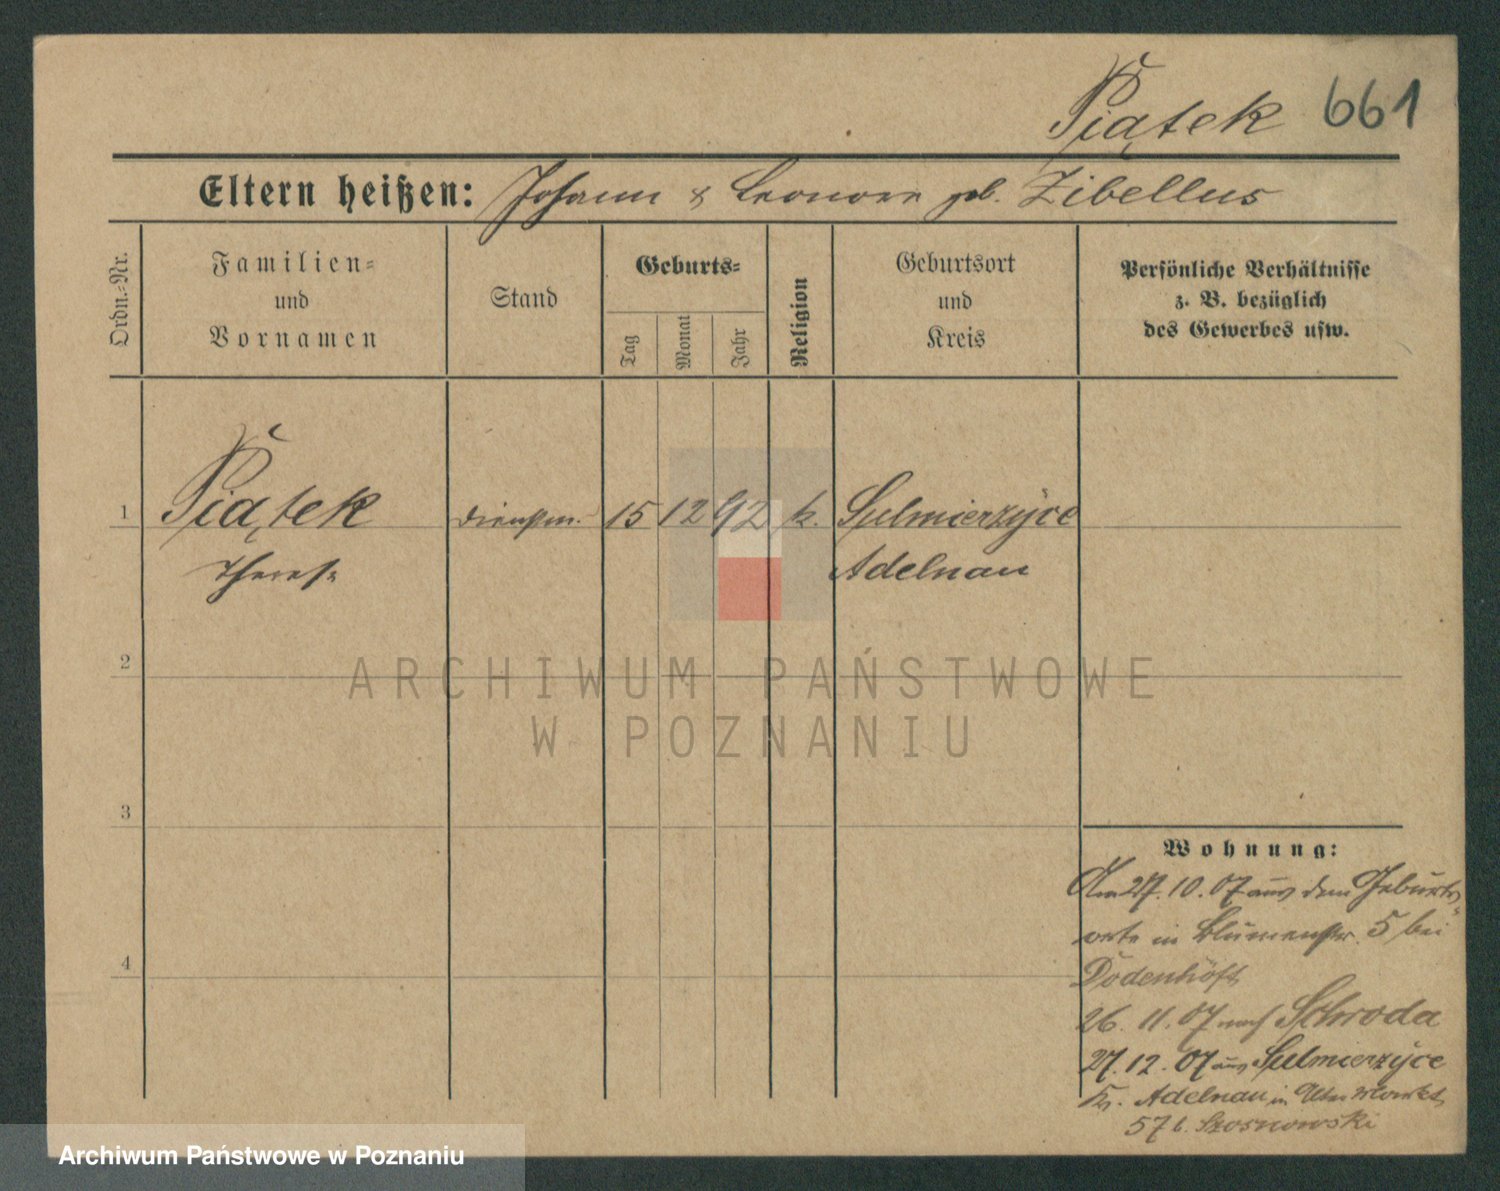 Piątek 661
Eltern heißen: Johann & Leonore geb. Zibellus
Ordn.=Nr.
Familien=
und
Vornamen
Stand
Geburts=
Tag
Monat
Jahr
Religion
Geburtsort
und
Kreis
Persönliche Verhältnisse
z. B. bezüglich
des Gewerbes usw.
1 Piątek Dienstm. 15 12 92 k. Sulmierzyce
Therese Adelnau
2
3
4
Wohnung:
Am 27. 10. 07 aus dem Geburts=
orte in Blumenstr. 5 bei
Dodenhöft
26. 11. 07 nach Schroda
27. 12. 07 aus Sulmierzyce
Kr. Adelnau in Alter Markt
57 b. Szosnowski
ARCHIWUM PAŃSTWOWE
W POZNANIU
Archiwum Państwowe w Poznaniu